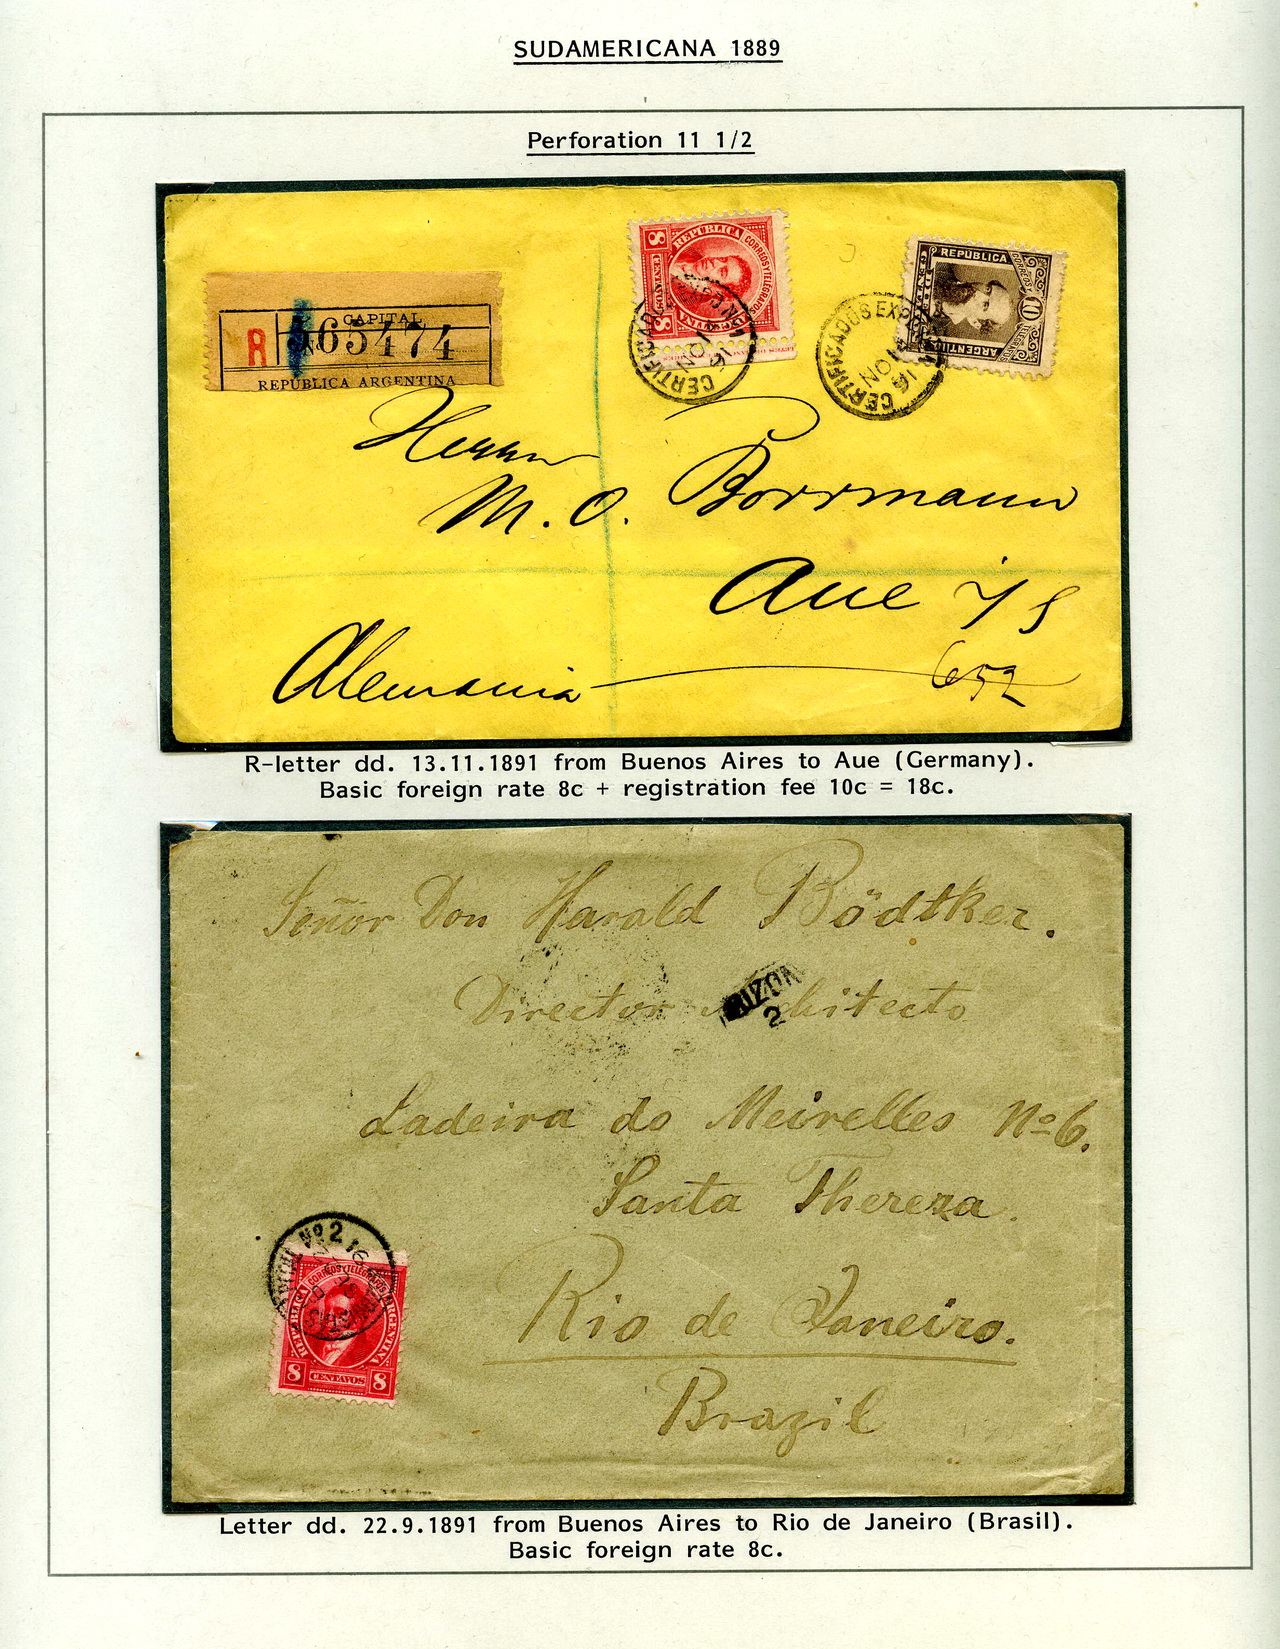 SUDAMERICANA 1889
Perforation 11 1/2
CAPITAL
R No 65474
REPUBLICA ARGENTINA
8 CENTAVOS 8
REPUBLICA ARGENTINA
CORREOS Y TELEGRAFOS
CERTIFICADOS
REPUBLICA
ARGENTINA
10
CERTIFICADOS EXP
NO
16
Herrn
M. O. Borrmann
Aue i/S
Alemania 652
R-letter dd. 13.11.1891 from Buenos Aires to Aue (Germany).
Basic foreign rate 8c + registration fee 10c = 18c.
Señor Don Harald Bödtker.
BUZON
2
Director Architecto
Ladeira do Meirelles No 6.
Santa Thereza.
No 2
REPUBLICA ARGENTINA
CORREOS Y TELEGRAFOS
8 CENTAVOS 8
Rio de Janeiro.
Brazil
Letter dd. 22.9.1891 from Buenos Aires to Rio de Janeiro (Brasil).
Basic foreign rate 8c.